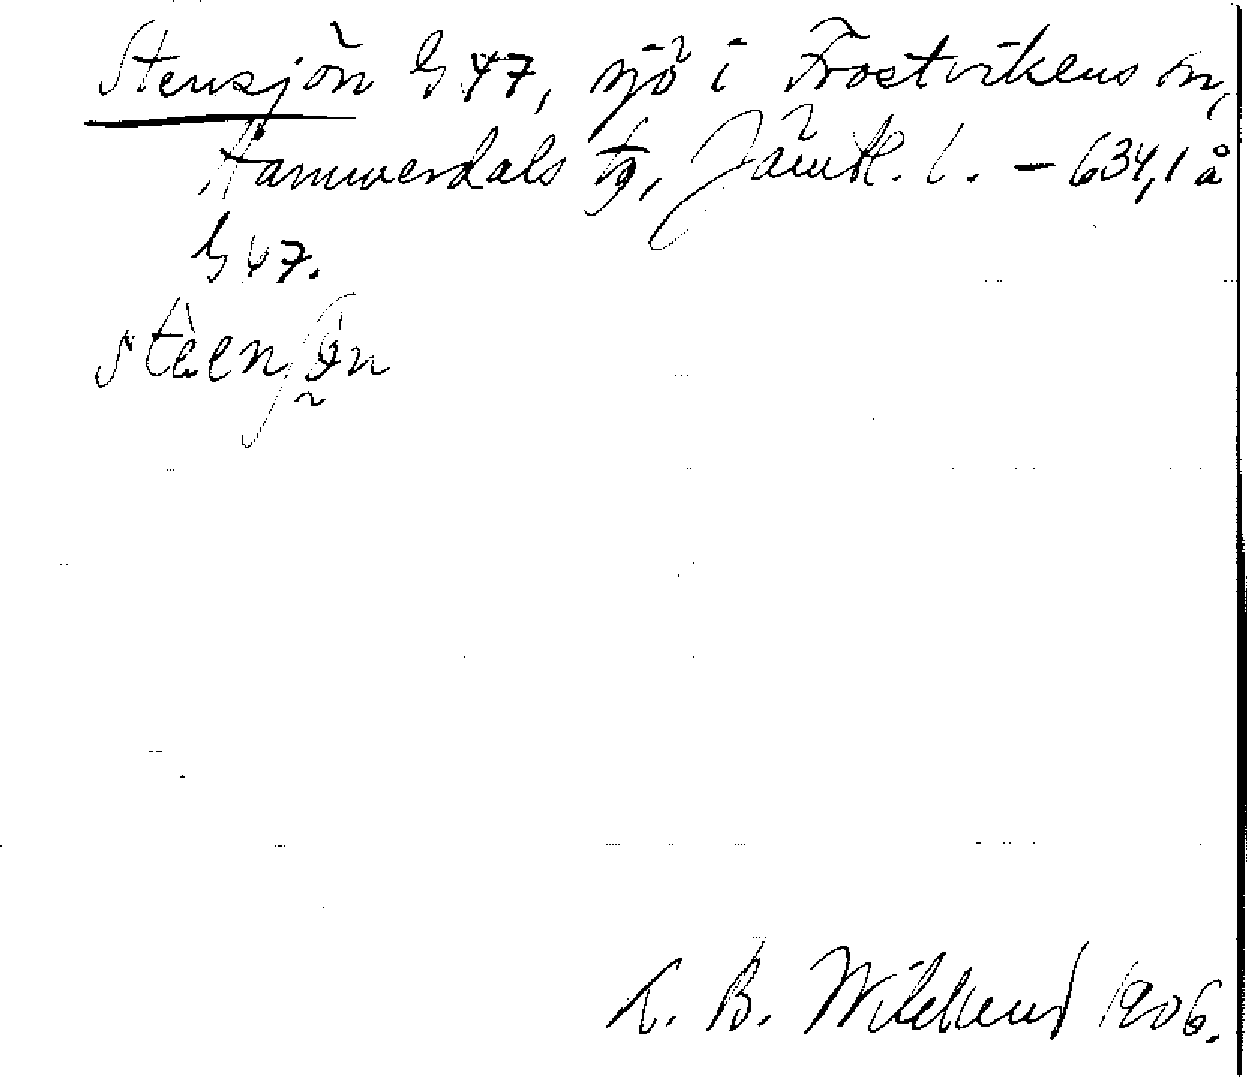 Stensjön G 47, sjö i Frostvikens sn,
Hammerdals tg, Jämtl. l. – 634,1 å
G 47.
stèen
K. B. Wiklund 1906.